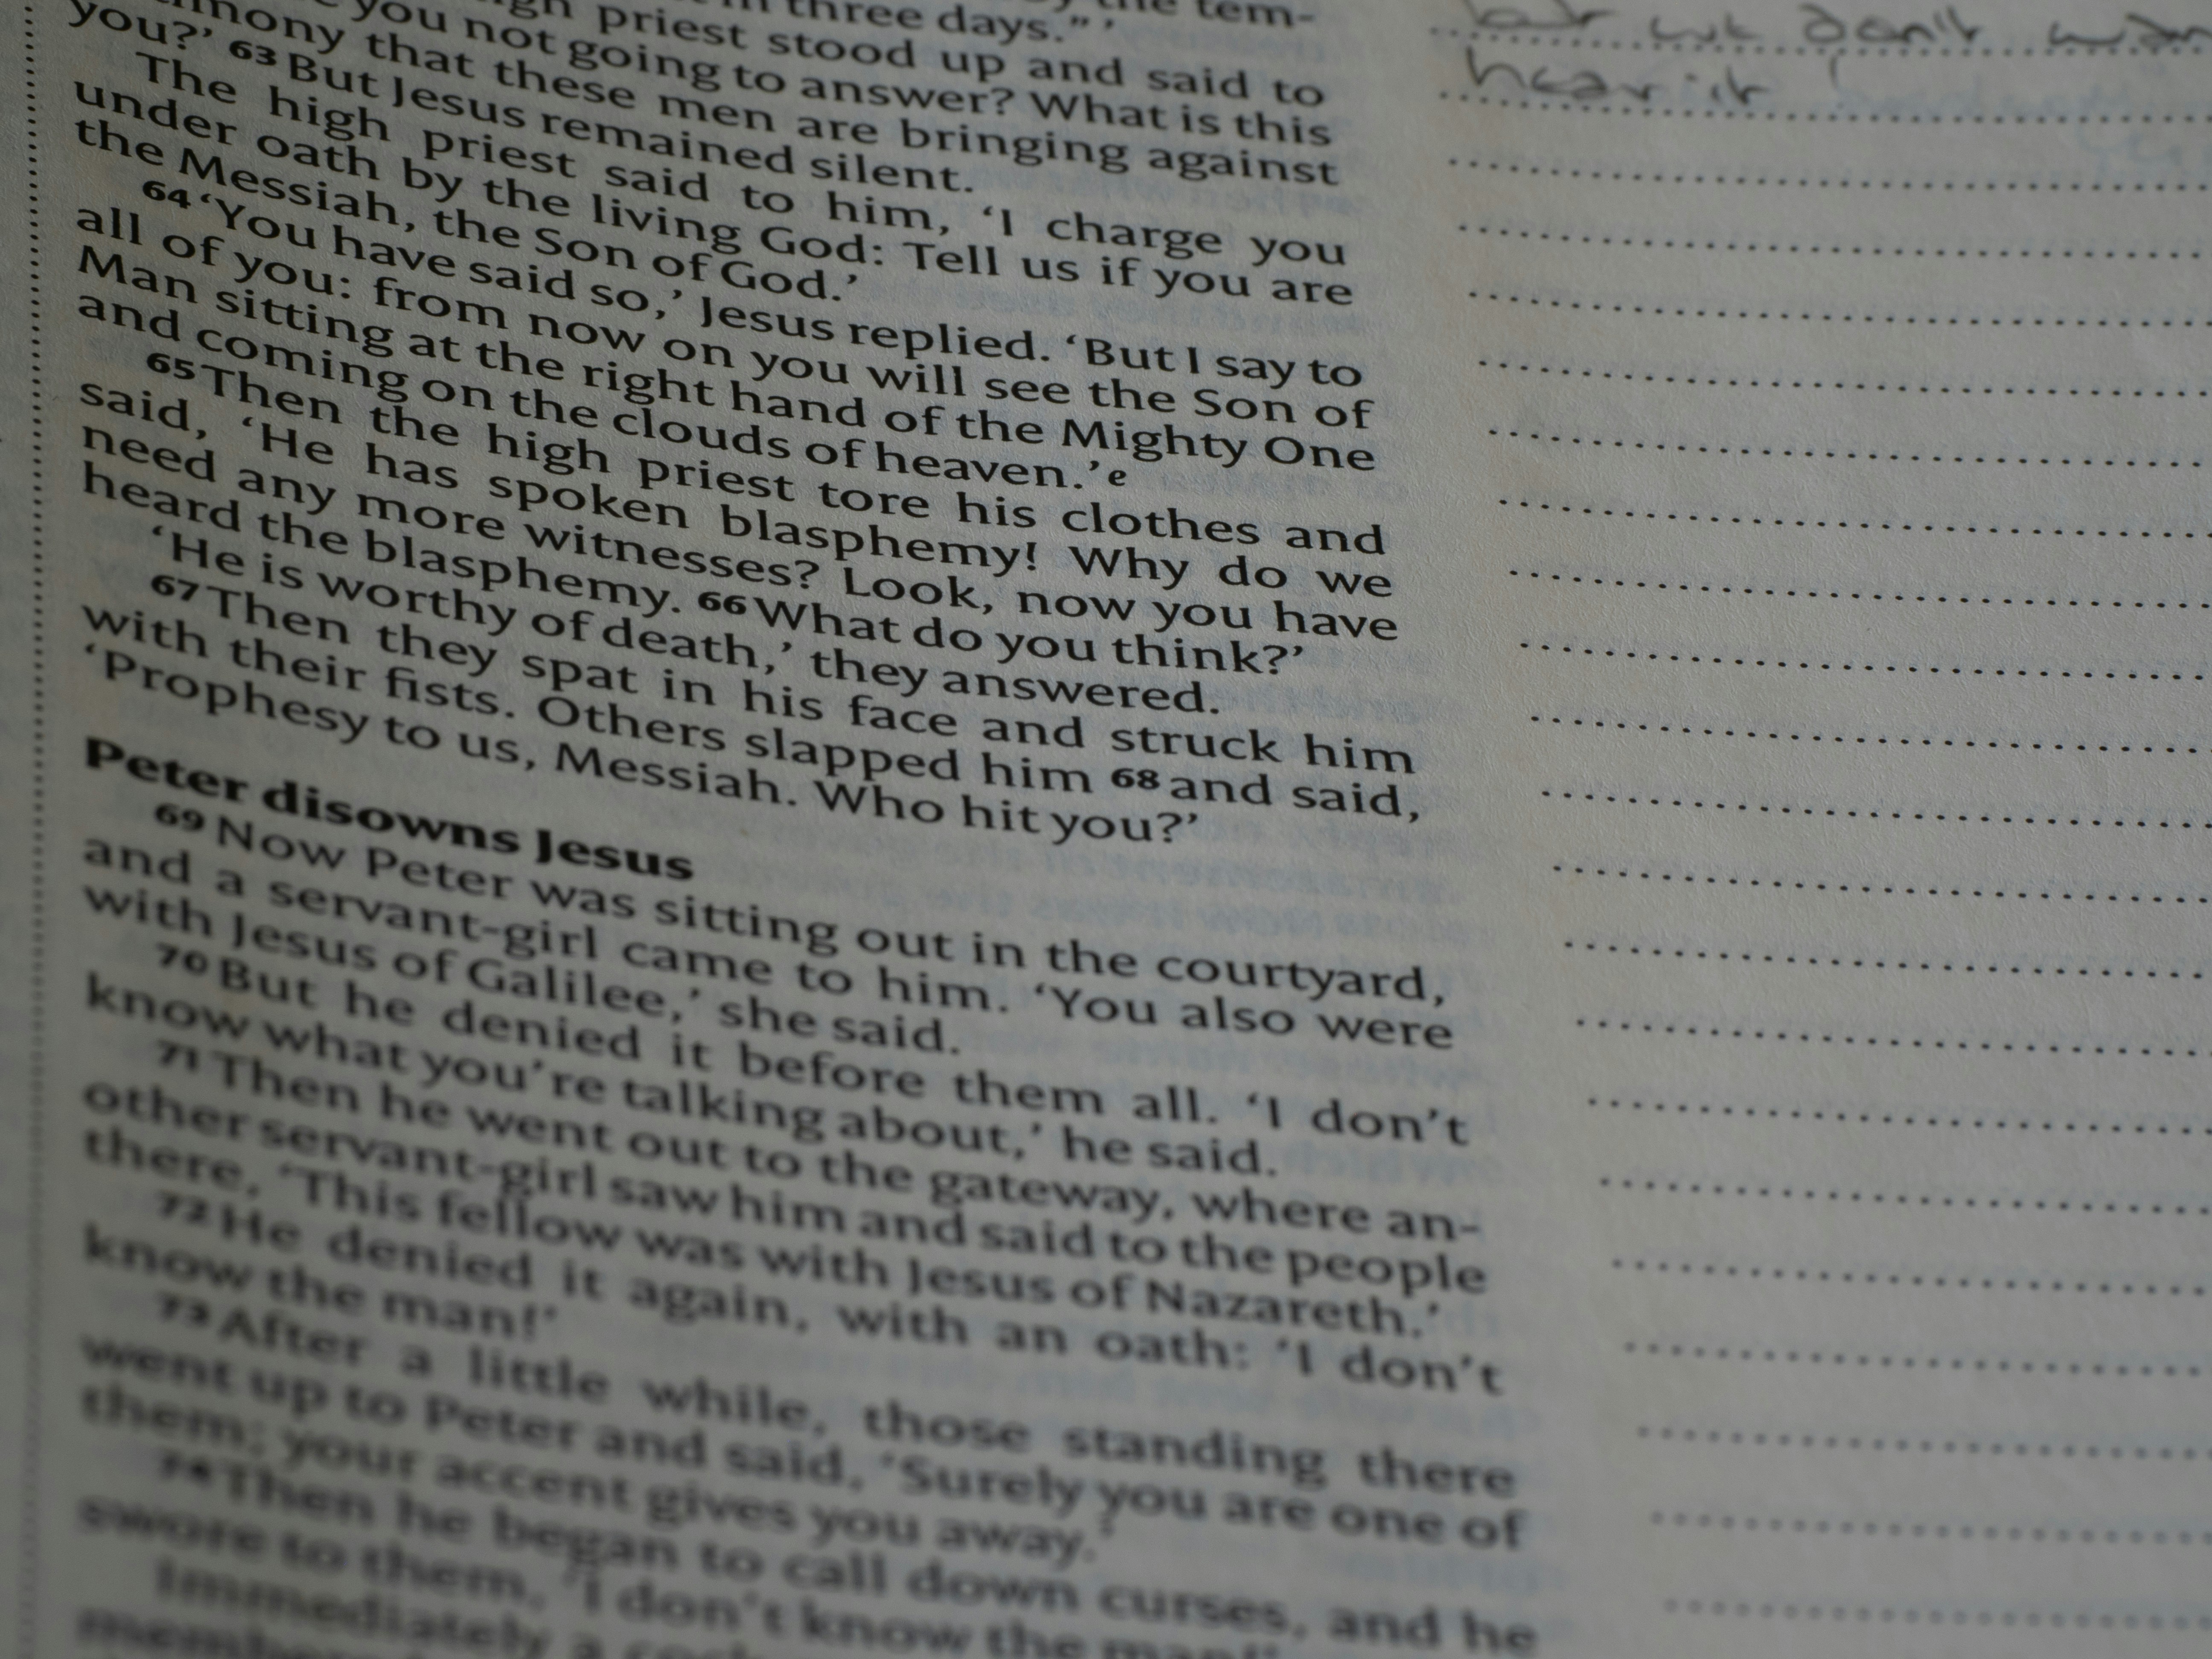 in three days." '
priest stood up and said to
you not going to answer? What is this
that these men are bringing against
you?' 63 But Jesus remained silent.
The high priest said to him, 'I charge you
under oath by the living God: Tell us if you are
the Messiah, the Son of God.'
64 'You have said so,' Jesus replied. 'But I say to
all of you: from now on you will see the Son of
Man sitting at the right hand of the Mighty One
and coming on the clouds of heaven.'e
65 Then the high priest tore his clothes and
said, 'He has spoken blasphemy! Why do we
need any more witnesses? Look, now you have
heard the blasphemy. 66 What do you think?'
'He is worthy of death,' they answered.
67 Then they spat in his face and struck him
with their fists. Others slapped him 68 and said,
'Prophesy to us, Messiah. Who hit you?'
Peter disowns Jesus
69 Now Peter was sitting out in the courtyard,
and a servant-girl came to him. 'You also were
with Jesus of Galilee,' she said.
70 But he denied it before them all. 'I don't
know what you're talking about,' he said.
71 Then he went out to the gateway, where an-
other servant-girl saw him and said to the people
there, 'This fellow was with Jesus of Nazareth.'
72 He denied it again, with an oath: 'I don't
know the man!'
73 After a little while, those standing there
went up to Peter and said, 'Surely you are one of
them; your accent gives you away.'
74 Then he began to call down curses, and he
swore to them, 'I don't know the man!'
Immediately a
we don't
hear it!